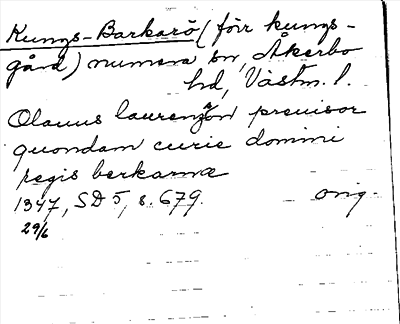 Kungs-Barkarö (förr kungs-
gård) numera sn, Åkerbo
hd, Västm. l.
Olauus laurenzon prouisor
quondam curie domini
regis berkarnæ
1347, SD 5, s. 679. orig.
29/6